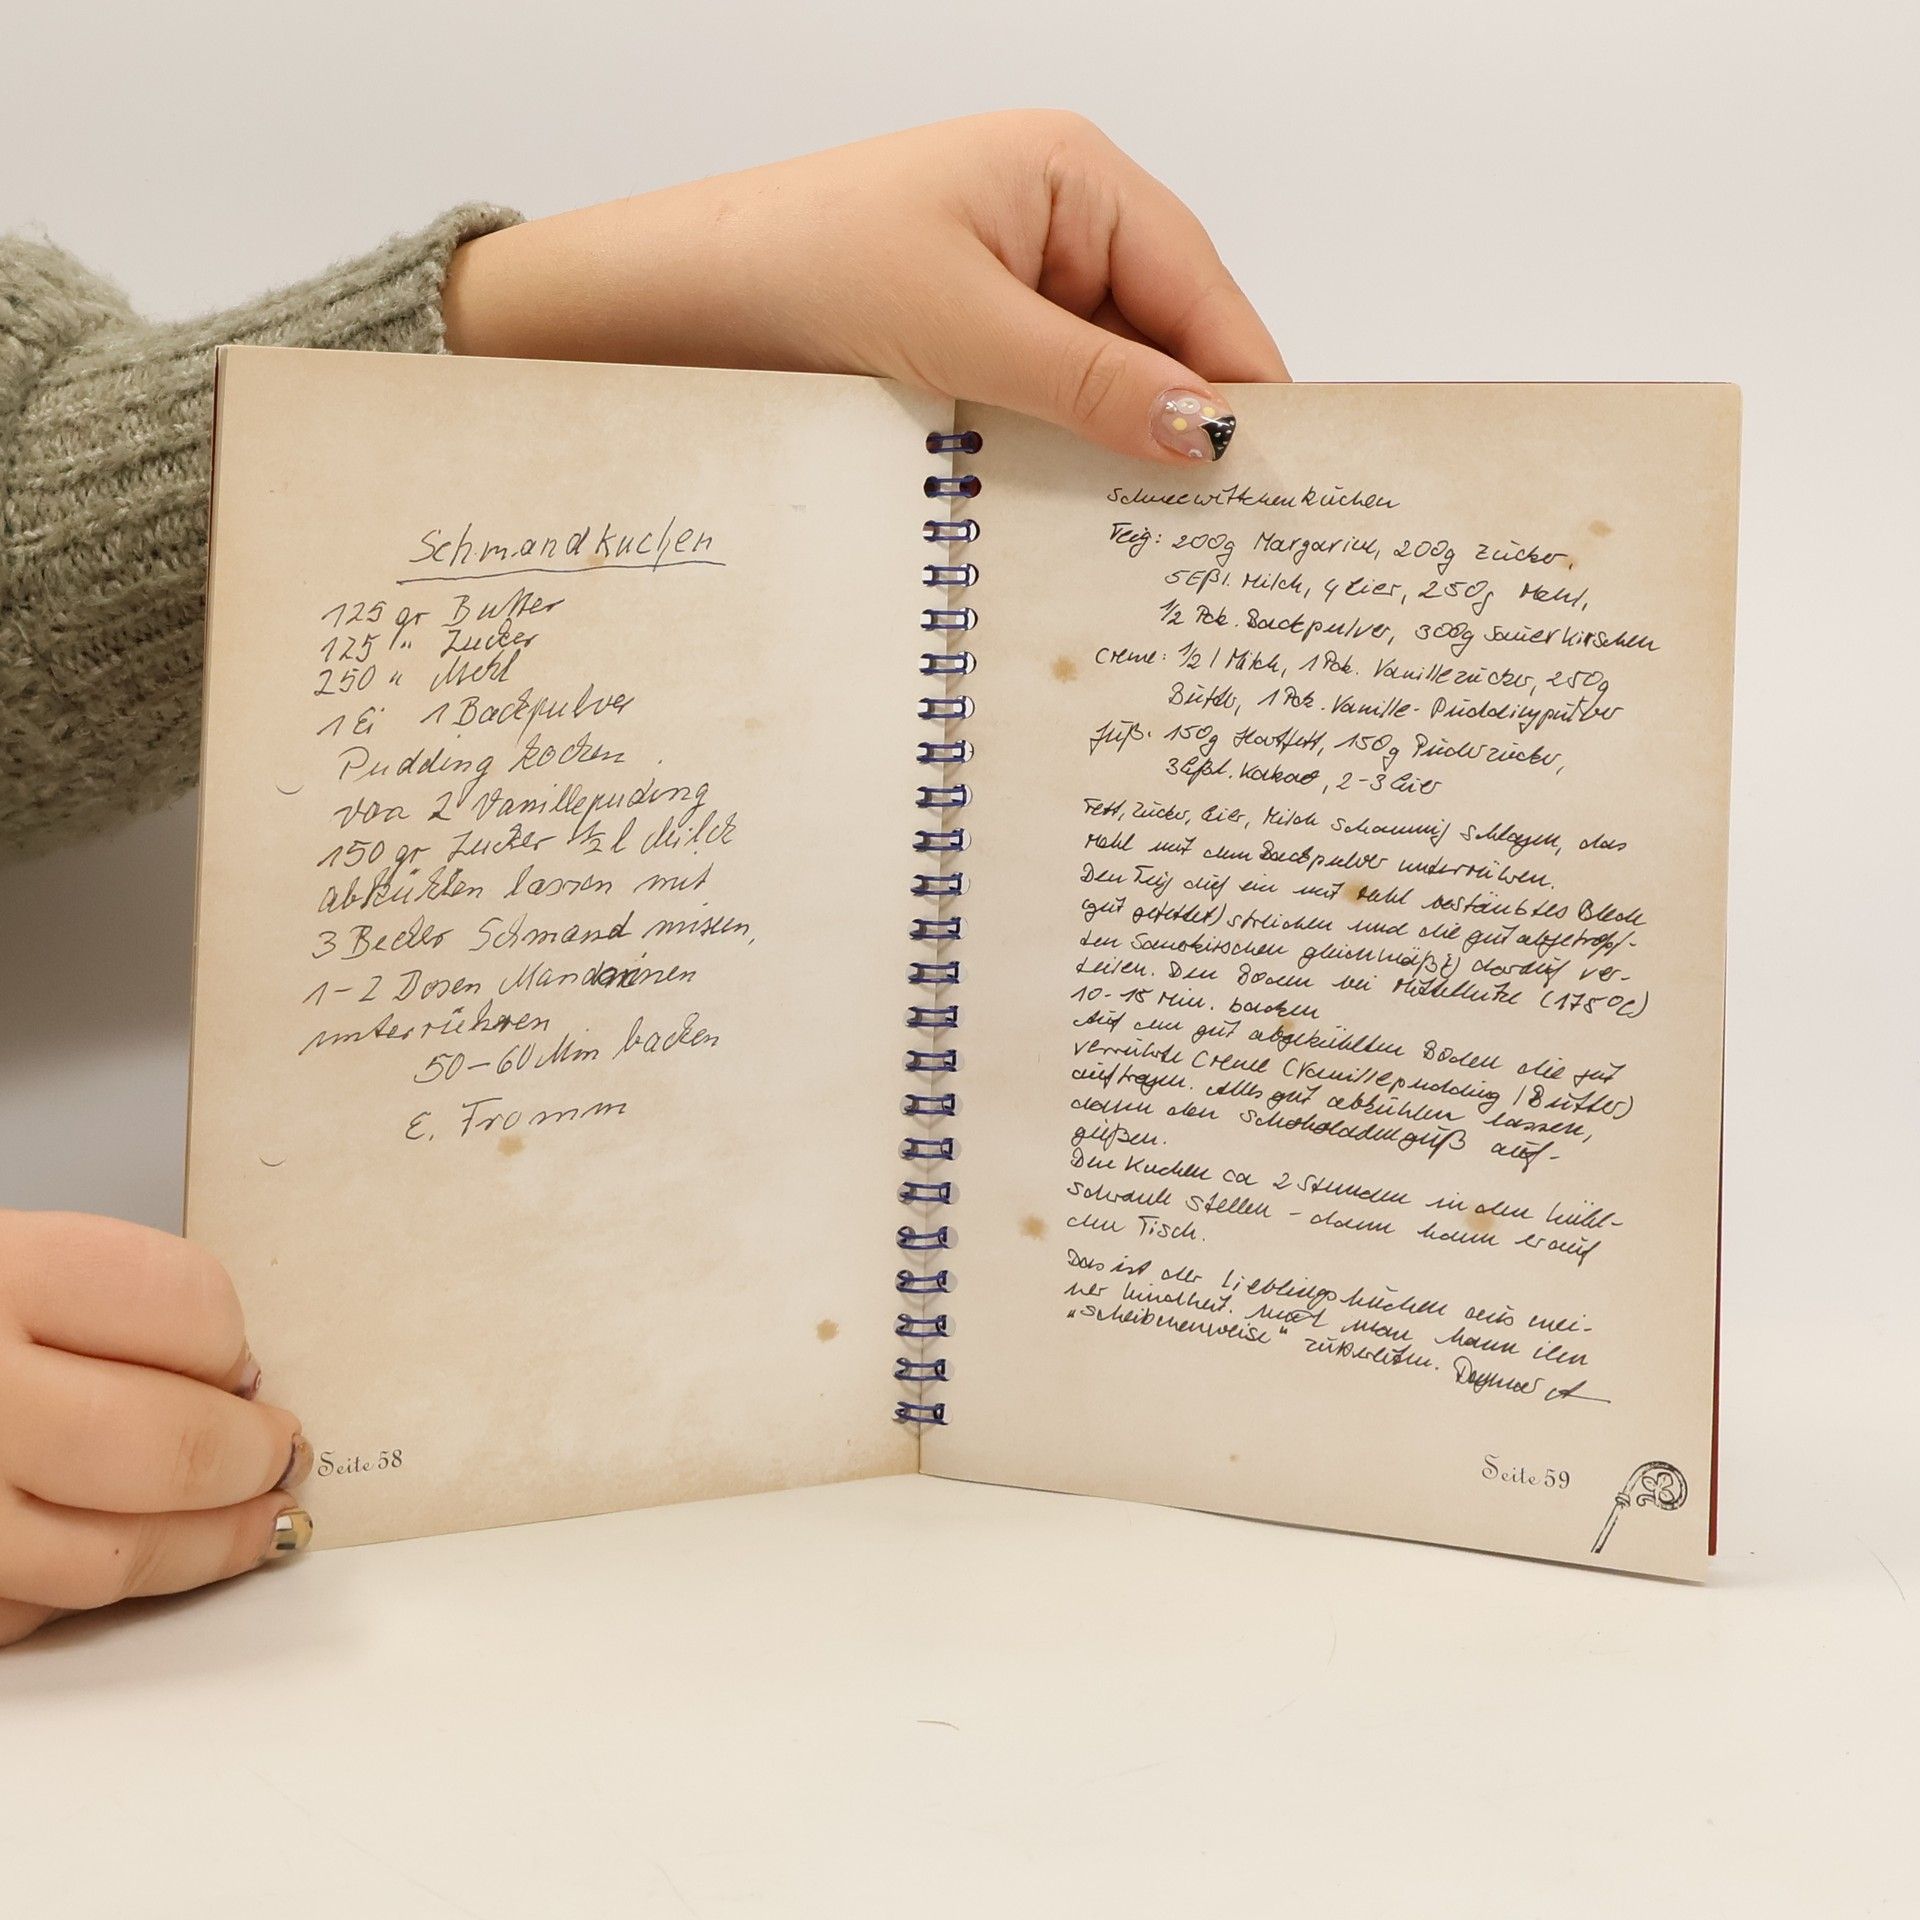 Schmandkuchen
125 gr Butter
125 " Zucker
250 " Mehl
1 Ei 1 Backpulver
Pudding kochen.
von 2 Vanillepuding
150 gr Zucker 1/2 l Milch
abkühlen lassen mit
3 Becher Schmand mixen,
1-2 Dosen Mandarinen
unterrühren
50-60 Min backen
E. Fromm
Seite 58
Schneewittchenkuchen
Teig: 200g Margarine, 200g Zucker,
5 Eßl. Milch, 4 Eier, 250g Mehl,
1/2 Pck. Backpulver, 300g Sauerkirschen
Creme: 1/2 l Milch, 1 Pck. Vanillezucker, 250g
Butter, 1 Pck. Vanille-Puddingpulver
Guß: 150g Hartfett, 150g Puderzucker,
3 Eßl. Kakao, 2-3 Eier
Fett, Zucker, Eier, Milch schaumig schlagen, das
Mehl mit dem Backpulver unterrühren.
Den Teig auf ein mit Mehl bestäubtes Blech
(gut gefettet) streichen und die gut abgetropf-
ten Sauerkirschen gleichmäßig darauf ver-
teilen. Den Boden bei Mittelhitze (175°C)
10-15 Min. backen
Auf den gut abgekühlten Boden die gut
verrührte Creme (Vanillepudding / Butter)
auftragen. Alles gut abkühlen lassen,
dann den Schokoladenguß auf-
gießen.
Den Kuchen ca 2 Stunden in den Kühl-
schrank stellen - dann kann er auf
den Tisch.
Das ist der Lieblingskuchen aus mei-
ner Kindheit. Und man kann ihn
"scheibchenweise" zubereiten. Dagmar A
Seite 59